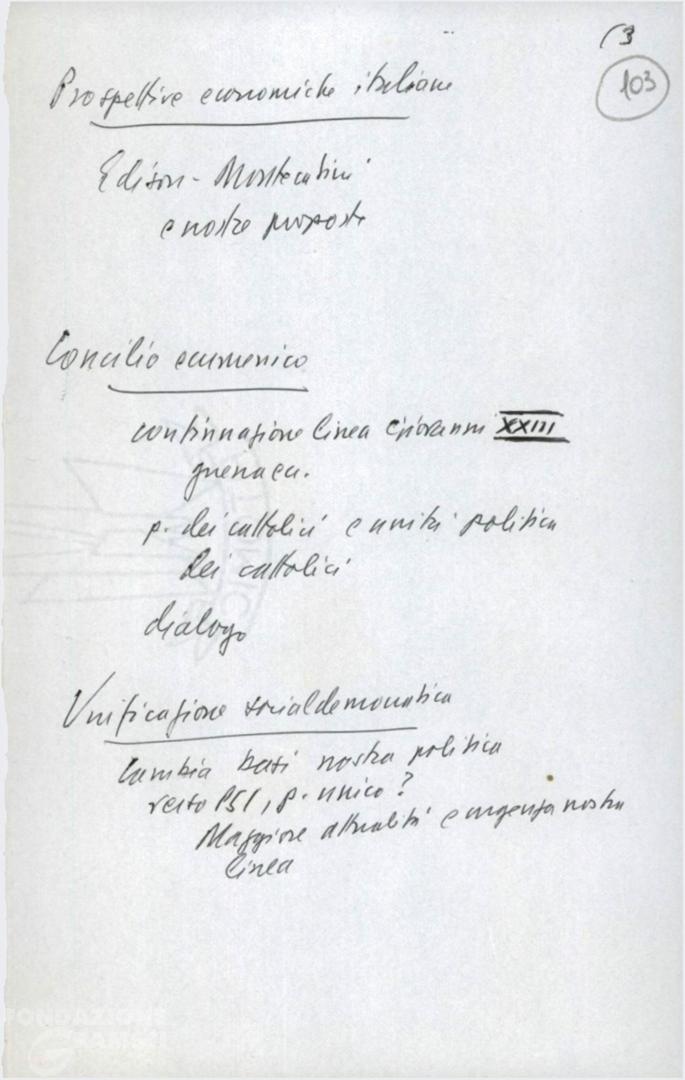 (3
103
Prospettive economiche italiane
Edison - Montecatini
e nostre proposte
Concilio ecumenico
continuazione linea Giovanni XXIII
guerra ecc.
p. dei cattolici e unità politica
dei cattolici
dialogo
Unificazione socialdemocratica
Cambia basi nostra politica
verso PSI, p. unico?
Maggiore attualità e urgenza nostra
linea
FONDAZIONE
GRAMSCI